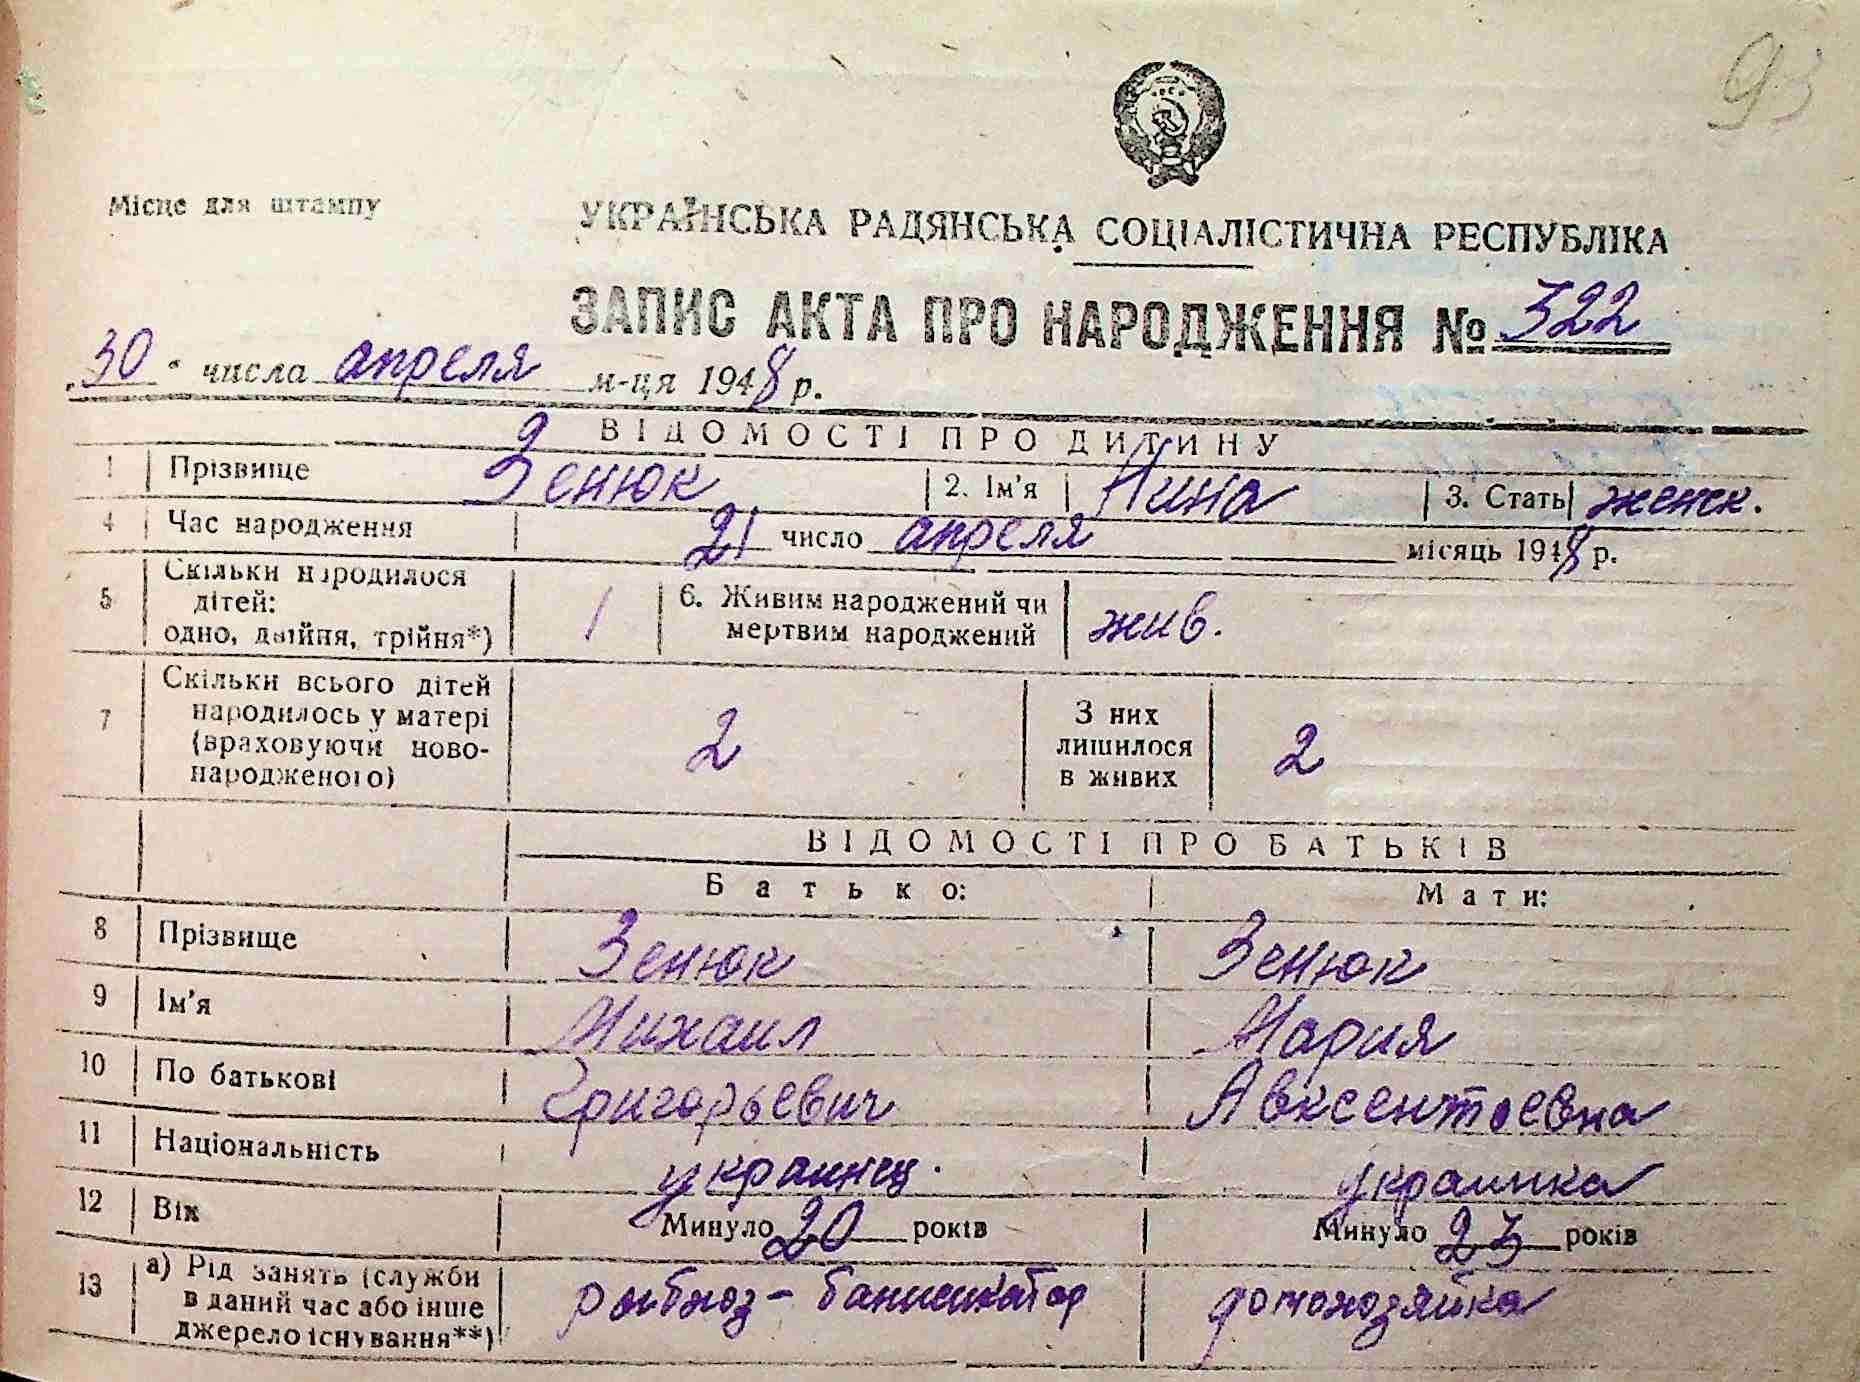 93
Місце для штампу
УКРАЇНСЬКА РАДЯНСЬКА СОЦІАЛІСТИЧНА РЕСПУБЛІКА
ЗАПИС АКТА ПРО НАРОДЖЕННЯ № 322
„30" числа апреля м-ця 1948 р.
ВІДОМОСТІ ПРО ДИТИНУ
1 Прізвище Зенюк 2. Ім'я Нина 3. Стать женск.
4 Час народження 21 число апреля місяць 1948 р.
5 Скільки народилося дітей: одно, двійня, трійня*) 1 6. Живим народжений чи мертвим народжений жив.
7 Скільки всього дітей народилось у матері (враховуючи новонародженого) 2 З них лишилося в живих 2
ВІДОМОСТІ ПРО БАТЬКІВ
Батько: Мати:
8 Прізвище Зенюк Зенюк
9 Ім'я Михаил Мария
10 По батькові Григорьевич Авксентьевна
11 Національність украинец. украинка
12 Вік Минуло 20 років Минуло 23 років
13 а) Рід занять (служби в даний час або інше джерело існування**) домохозяйка